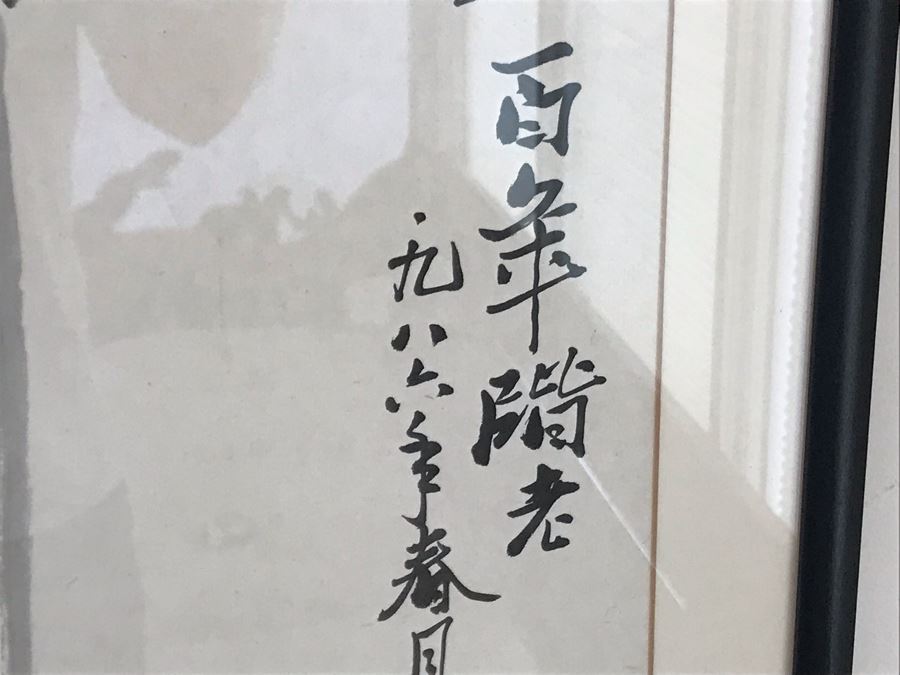 百年階老
一九八六年春